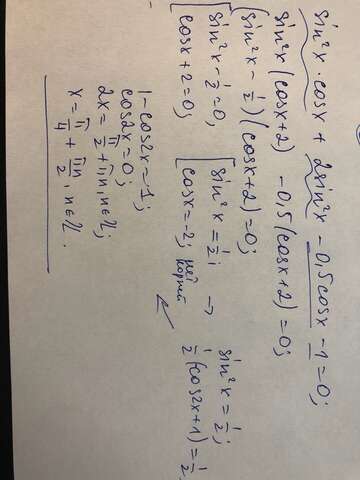 sin²x · cosx + 2sin²x - 0,5cosx - 1 = 0;
sin²x (cosx+2) - 0,5 (cosx+2) = 0;
(sin²x - 1/2) (cosx+2) = 0;
[ sin²x - 1/2 = 0, [ sin²x = 1/2; → sin²x = 1/2;
cosx + 2 = 0; cosx = -2; нет корней 1/2 (cos2x+1) = 1/2
1 - cos2x = 1;
cos2x = 0;
2x = π/2 + πn, n∈ℤ;
x = π/4 + πn/2, n∈ℤ.